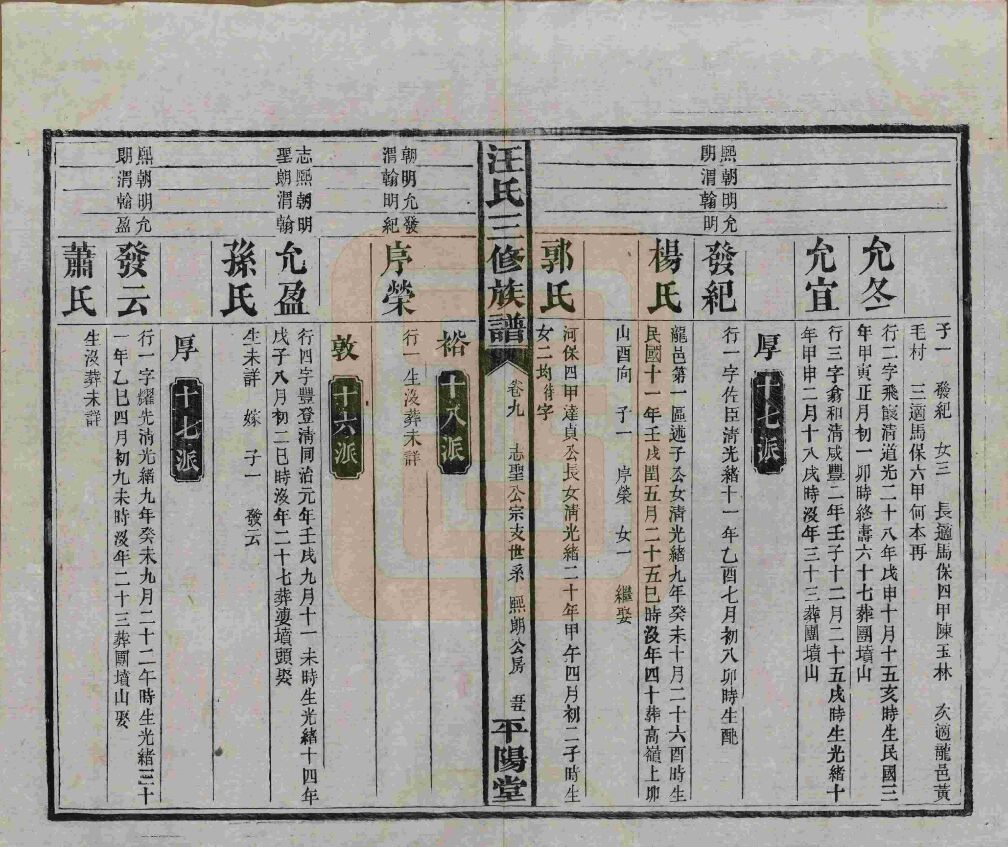 子一 發紀 女三 長適馬保四甲陳玉林 次適龍邑黃
毛村 三適馬保六甲何本再
允冬
行二字飛霞清道光二十八年戊申十月十五亥時生民國三
年甲寅正月初一卯時終壽六十七葬團墳山
允宜
行三字翕和清咸豐二年壬子十二月二十五戌時生光緒十
年甲申二月十八戌時沒年三十三葬團墳山
厚 十七派
熙朝明允
朗渭翰明
發紀
行一字佐臣清光緒十一年乙酉七月初八卯時生配
楊氏
龍邑第一區述子公女清光緒九年癸未十月二十六酉時生
民國十一年壬戌閏五月二十五巳時沒年四十葬高嶺上卯
山酉向 子一 序榮 女一 繼娶
郭氏
河保四甲達貞公長女清光緒二十年甲午四月初二子時生
女二均待字
汪氏三修族譜 卷九 志聖公宗支世系 熙朗公房 平陽堂
裕 十八派
朝明允發
渭翰明紀
序榮
行一生沒葬未詳
敦 十六派
志熙朝明
聖朗渭翰
允盈
行四字豐登清同治元年壬戌九月十一未時生光緒十四年
戊子八月初二巳時沒年二十七葬婆墳頭娶
孫氏
生未詳 嫁 子一 發云
厚 十七派
熙朝明允
朗渭翰盈
發云
行一字耀先清光緒九年癸未九月二十二午時生光緒三十
一年乙巳四月初九未時沒年二十三葬團墳山娶
蕭氏
生沒葬未詳